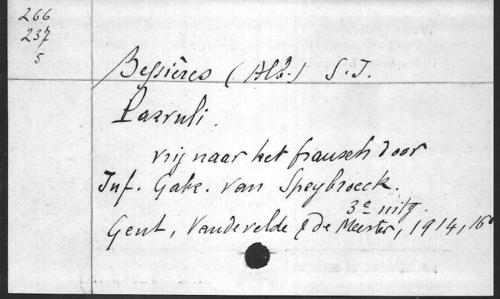 266
237
5
Bessières (Alb.) S.J.
Parvuli.
vrij naar het fransch door
Juf. Gabr. van Speybroeck.
3e uitg.
Gent, Vandevelde & De Meester, 1914, 16°